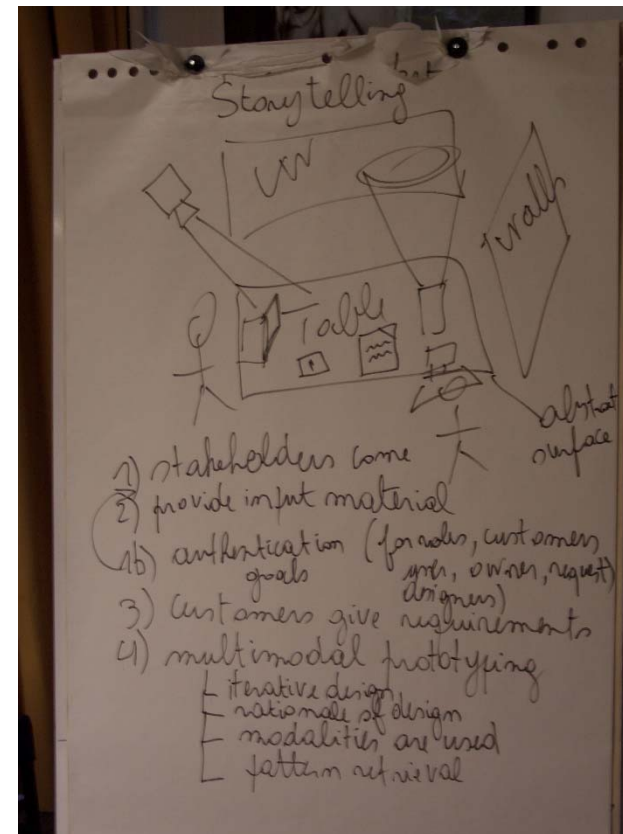 Storytelling
walls
Table
abstract
surface
1) stakeholders come
2) provide input material
1b) authentication (for roles, customers
goals user, owner, request)
designers)
3) Customers give requirements
4) multimodal prototyping
iterative design
rationale of design
modalities are used
pattern retrieval